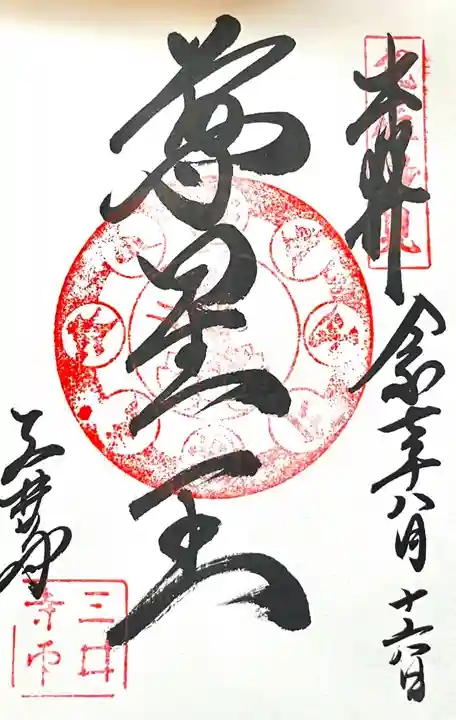 奉拝
令和七年八月十六日
尊星王
三井寺
三井
寺印